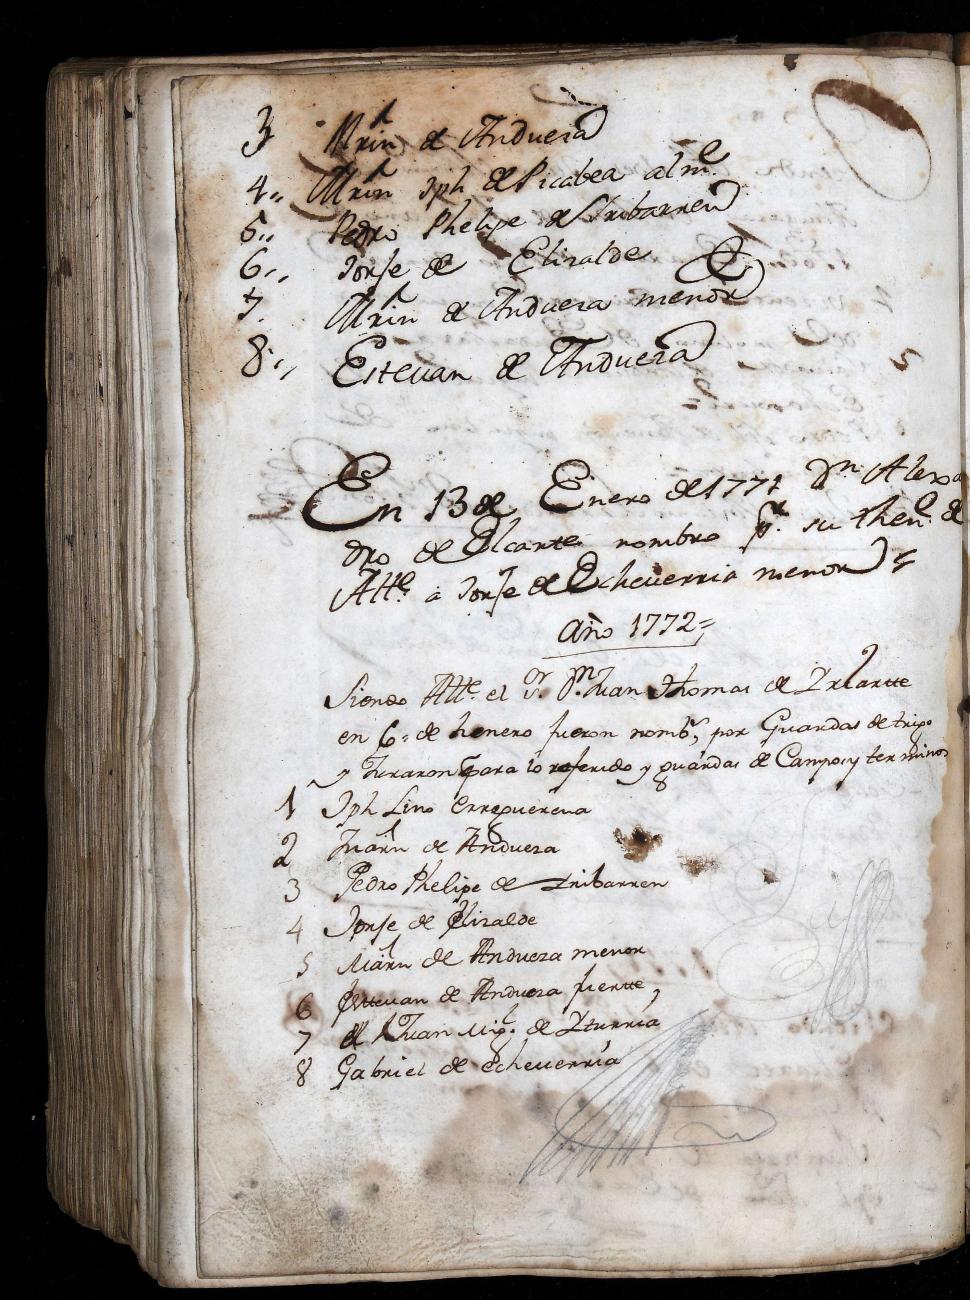 3 Mrin de Andueza
4,, Mrin Jph de Picabea alme
5,, Pedro Phelipe de Iribarren
6,, Jorje de Elizalde
7. Mrin de Andueza menor
8,, Estevan de Andueza
En 13 de Enero de 1771 Dn Alexa
dro de Elcarte nombro pr. su Thene. de
Alle. a Jorje de Echeverria menor
Año 1772
Siendo Alle. el Sr. Dn. Juan Thomas de Yriartte
en 6,, de henero fueron nombs, por Guardas de trigo
y Juraron para lo referido y guardas de Campos y terminos
1 Jph Lino Erreguerena
2 Marn de Andueza
3 Pedro Phelipe de Iribarren
4 Jorje de Elizalde
5 Marn de Andueza menor
6 Esttevan de Andueza fuertte,
7 Juan Migl. de Yturria
8 Gabriel de Echeverria